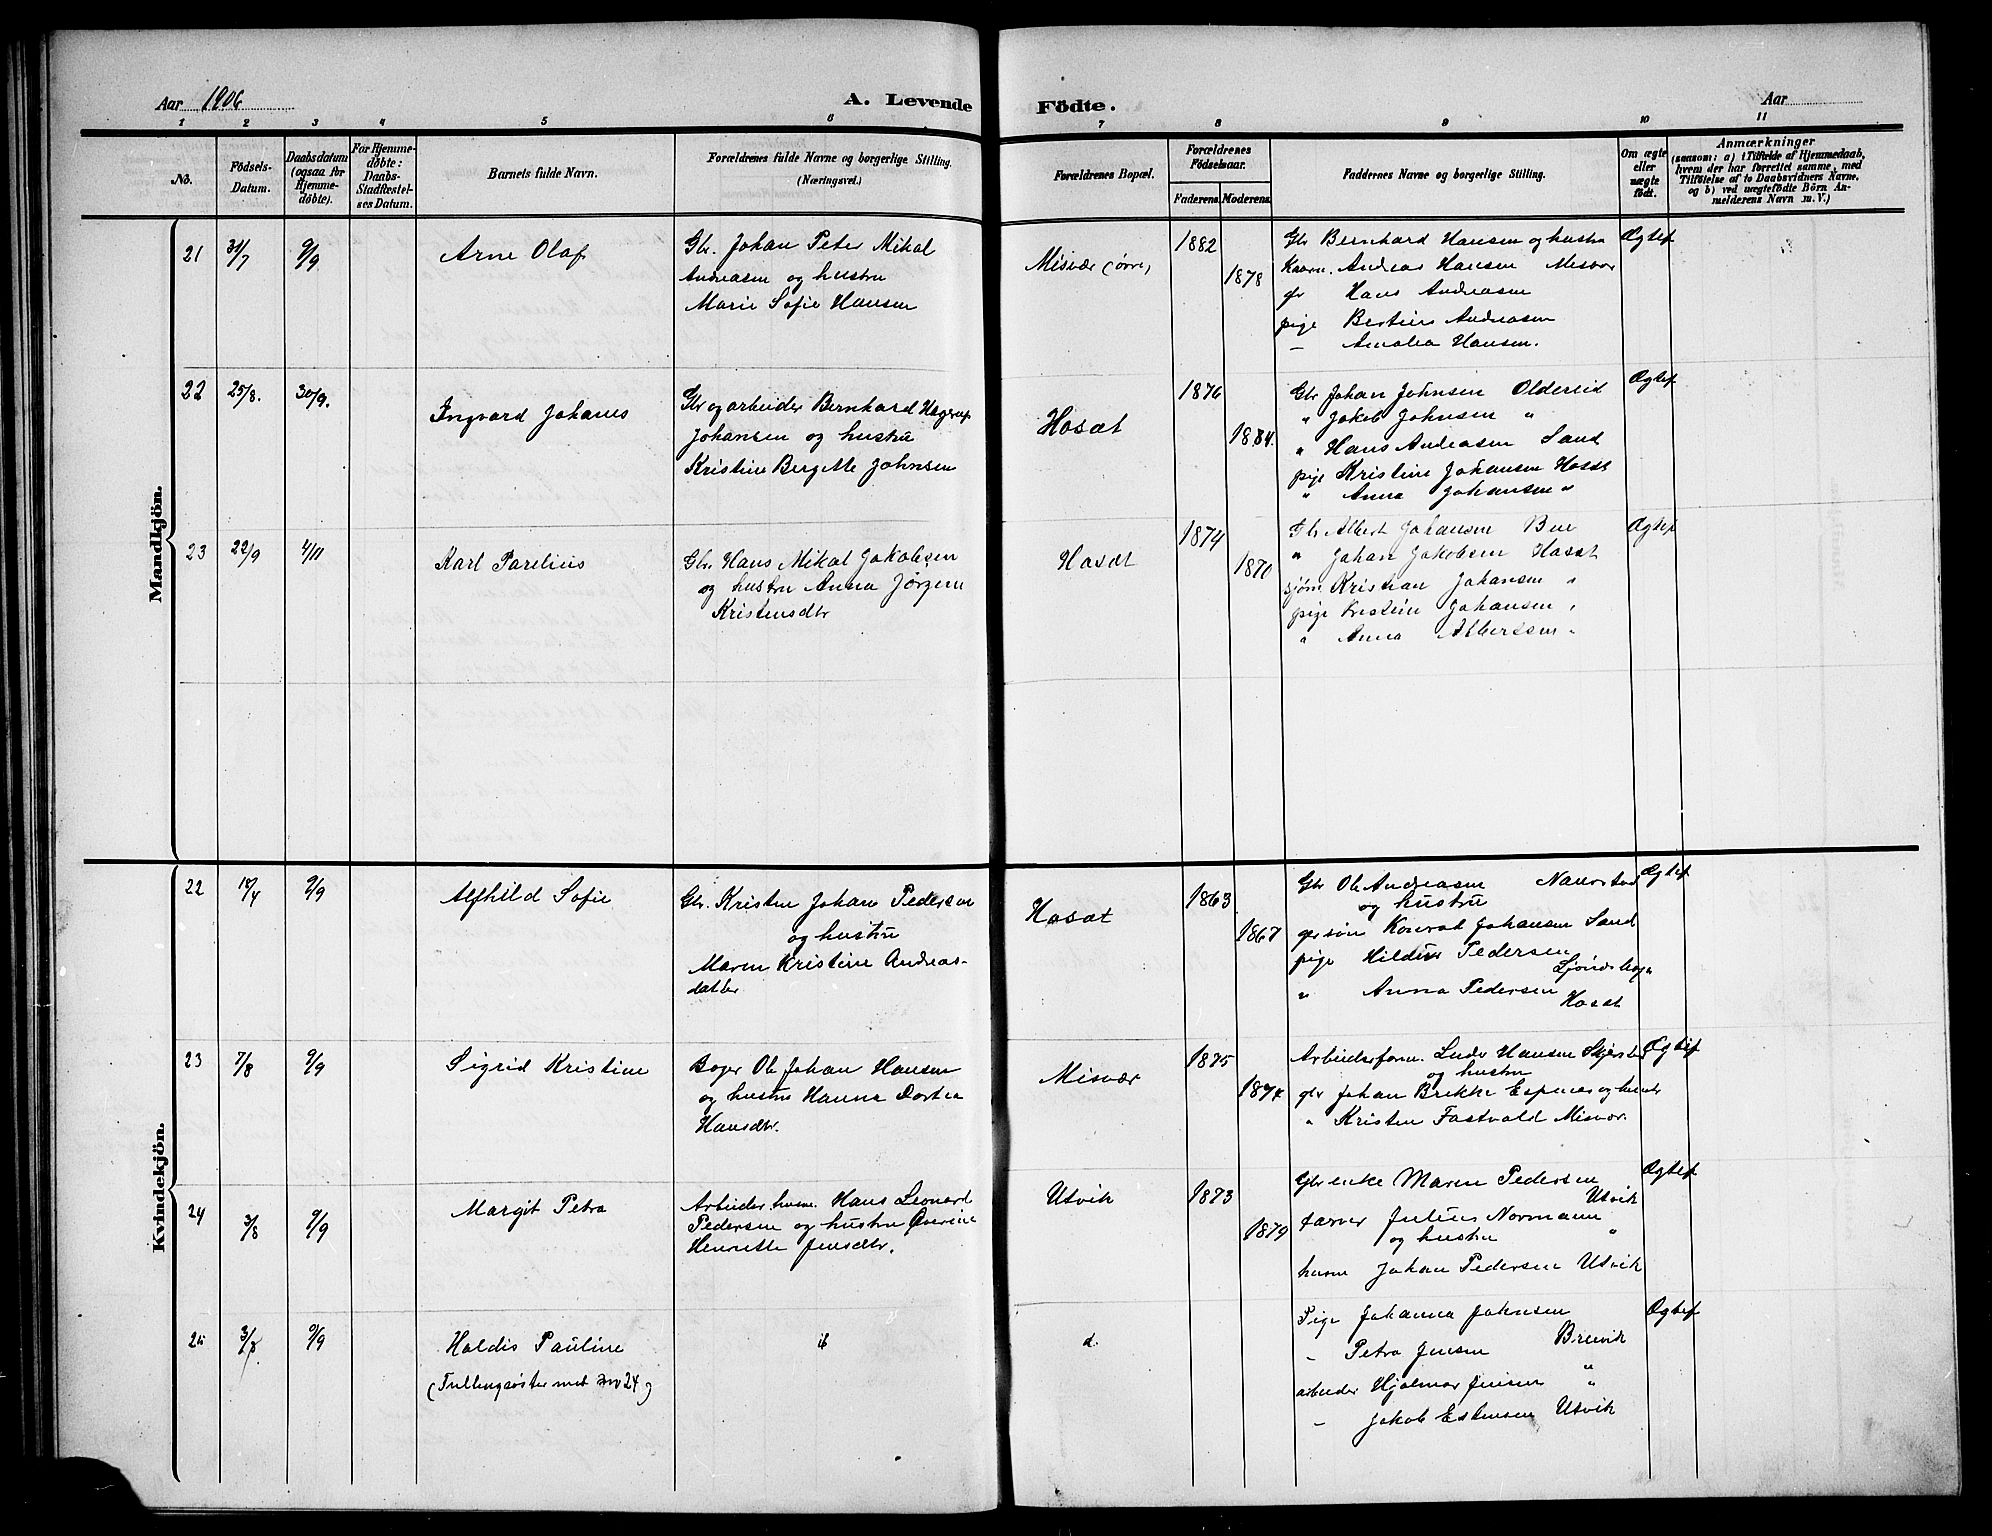 Aar 1906
A. Levende Födte.
Aar
1 2 3 4 5 6 7 8 9 10 11
No.
Födsels-Datum.
Daabsdatum (ogsaa for Hjemmedøbte).
For Hjemmedøbte: Daabs-Stadfæstelses Datum.
Barnets fulde Navn.
Forældrenes fulde Navne og borgerlige Stilling.
(Næringsvei.)
Forældrenes Bopæl.
Forældrenes Födselsaar.
Faderens Moderens
Faddernes Navne og borgerlige Stilling.
Om ægte eller uægte födt.
Anmærkninger
(saasom: a) i Tilfælde af Hjemmedaab, hvem der har forrettet samme, med Tilföielse af to Daabsvidners Navne, og b) ved uægtefödte Börn Anmelderens Navn m. V.)
Mandkjön.
21 31/7 9/9 Arne Olaf
Gbr. Johan Peter Mikal
Andreasen og hustru
Marie Sofie Hansen
Misvær (øvre)
1882
1878
Gbr Bernhard Hansen og hustru
Kaarm. Andreas Hansen Misvær
gbr Hans Andreasen
pige Bertine Andreasen
— Amalia Hansen.
Ægtef
22 25/8. 30/9. Ingvard Johanes
Gbr og arbeider Bernhard Hagerup
Johansen og hustru
Kristine Bergitte Johnsen
Hasæt
1876
1884.
Gbr Johan Johnsen Oldereid
" Jakob Johnsen "
" Hans Andreasen Sand
pige Kristine Johansen Hasæt
" Anna Johansen "
Ægtef
23 22/9 4/11 Karl Parelius
Gbr. Hans Mikal Jakobsen
og hustru Anna Jørgine
Kristensdtr
Hasæt
1874
1870
Gbr Albert Johansen Bue
" Johan Jakobsen Hasæt
sjøm Kristian Johansen "
pige Kristine Johansen "
" Anna Albertsen "
Ægtef
Kvindekjön.
22 18/4 9/9 Alfhild Sofie
Gbr. Kristen Johan Pedersen
og hustru
Maren Kristine Andreas-
datter
Hasæt
1863
1867
Gbr Ole Andreasen Naurstad
og hustru
gbr søn Konrad Johansen Sand
pige Hildur Pedersen
" Anna Pedersen
Hasæt
Ægtef
23 7/8 9/9 Sigrid Kristine
Bager Ole Johan Hansen
og hustru Hanna Dortea
Hansdtr.
Misvær
1875
1874
Arbeidsform. Hansen Skjerstad
og hustru
gbr Johan Brekke Espenes og hustr
" Kristen Fastvold Misvær.
Ægtef
24 3/8 9/9 Margit Petra
Arbeider husm. Hans Leonard
Pedersen og hustru Overine
Henriette Jensdtr.
Utvik
1873
1879
Gbr enke Maren Pedersen
Utvik
farver Julius Normann
og hustru "
husm Johan Pedersen Utvik
Ægtef
25 3/8. 9/9 Haldis Pauline
(Tvillingsøster med no 24)
d.
Pige Johanna Johnsen
— Petra Jensen Breivik
arbeider Hjalmar Jensen "
— Jakob Estensen Utvik
Ægtef